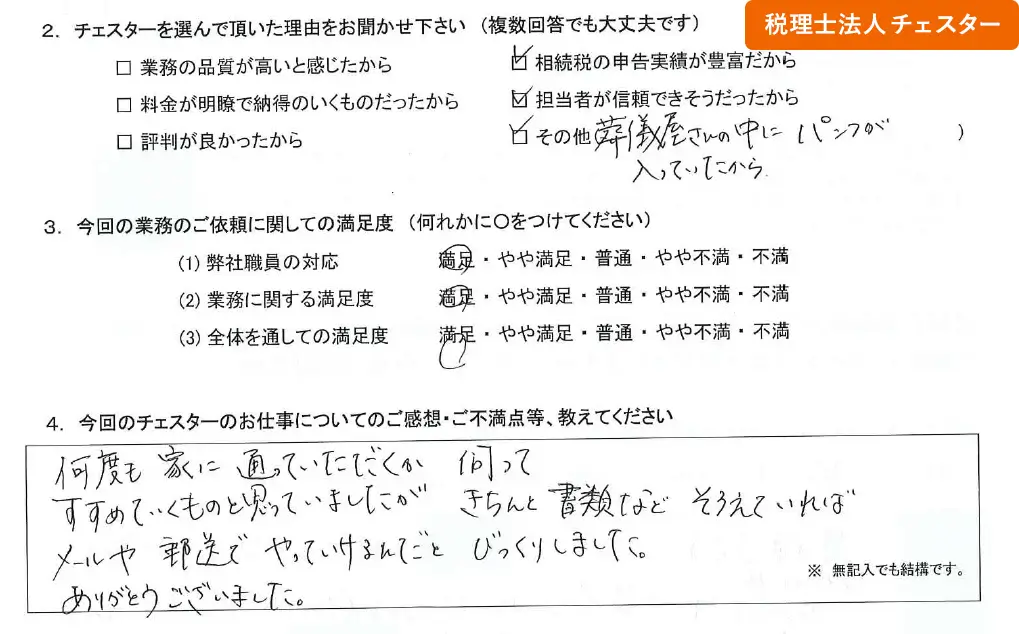 税理士法人チェスター
2. チェスターを選んで頂いた理由をお聞かせ下さい（複数回答でも大丈夫です）
□ 業務の品質が高いと感じたから ☑ 相続税の申告実績が豊富だから
□ 料金が明瞭で納得のいくものだったから ☑ 担当者が信頼できそうだったから
□ 評判が良かったから ☑ その他 葬儀屋さんの中に パンフが ）
入っていたから
3. 今回の業務のご依頼に関しての満足度（何れかに〇をつけてください）
(1) 弊社職員の対応 満足・やや満足・普通・やや不満・不満
(2) 業務に関する満足度 満足・やや満足・普通・やや不満・不満
(3) 全体を通しての満足度 満足・やや満足・普通・やや不満・不満
4. 今回のチェスターのお仕事についてのご感想・ご不満点等、教えてください
何度も 家に 通っていただくか 伺って
すすめていくものと思っていましたが きちんと 書類など そろえていれば
メールや 郵送で やっていけるんだごと びっくりしました。
※ 無記入でも結構です。
ありがとうございました。